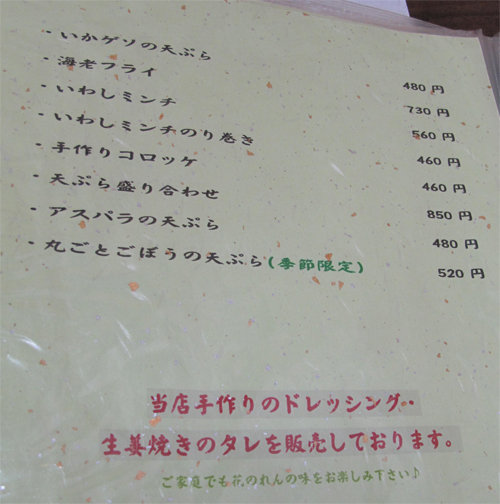 ・いかゲソの天ぷら 480 円
・海老フライ 730 円
・いわしミンチ 560 円
・いわしミンチのり巻き 460 円
・手作りコロッケ 460 円
・天ぷら盛り合わせ 850 円
・アスパラの天ぷら 480 円
・丸ごとごぼうの天ぷら(季節限定) 520 円
当店手作りのドレッシング・・
生姜焼きのタレを販売しております。
ご家庭でも花のれんの味をお楽しみ下さい♪